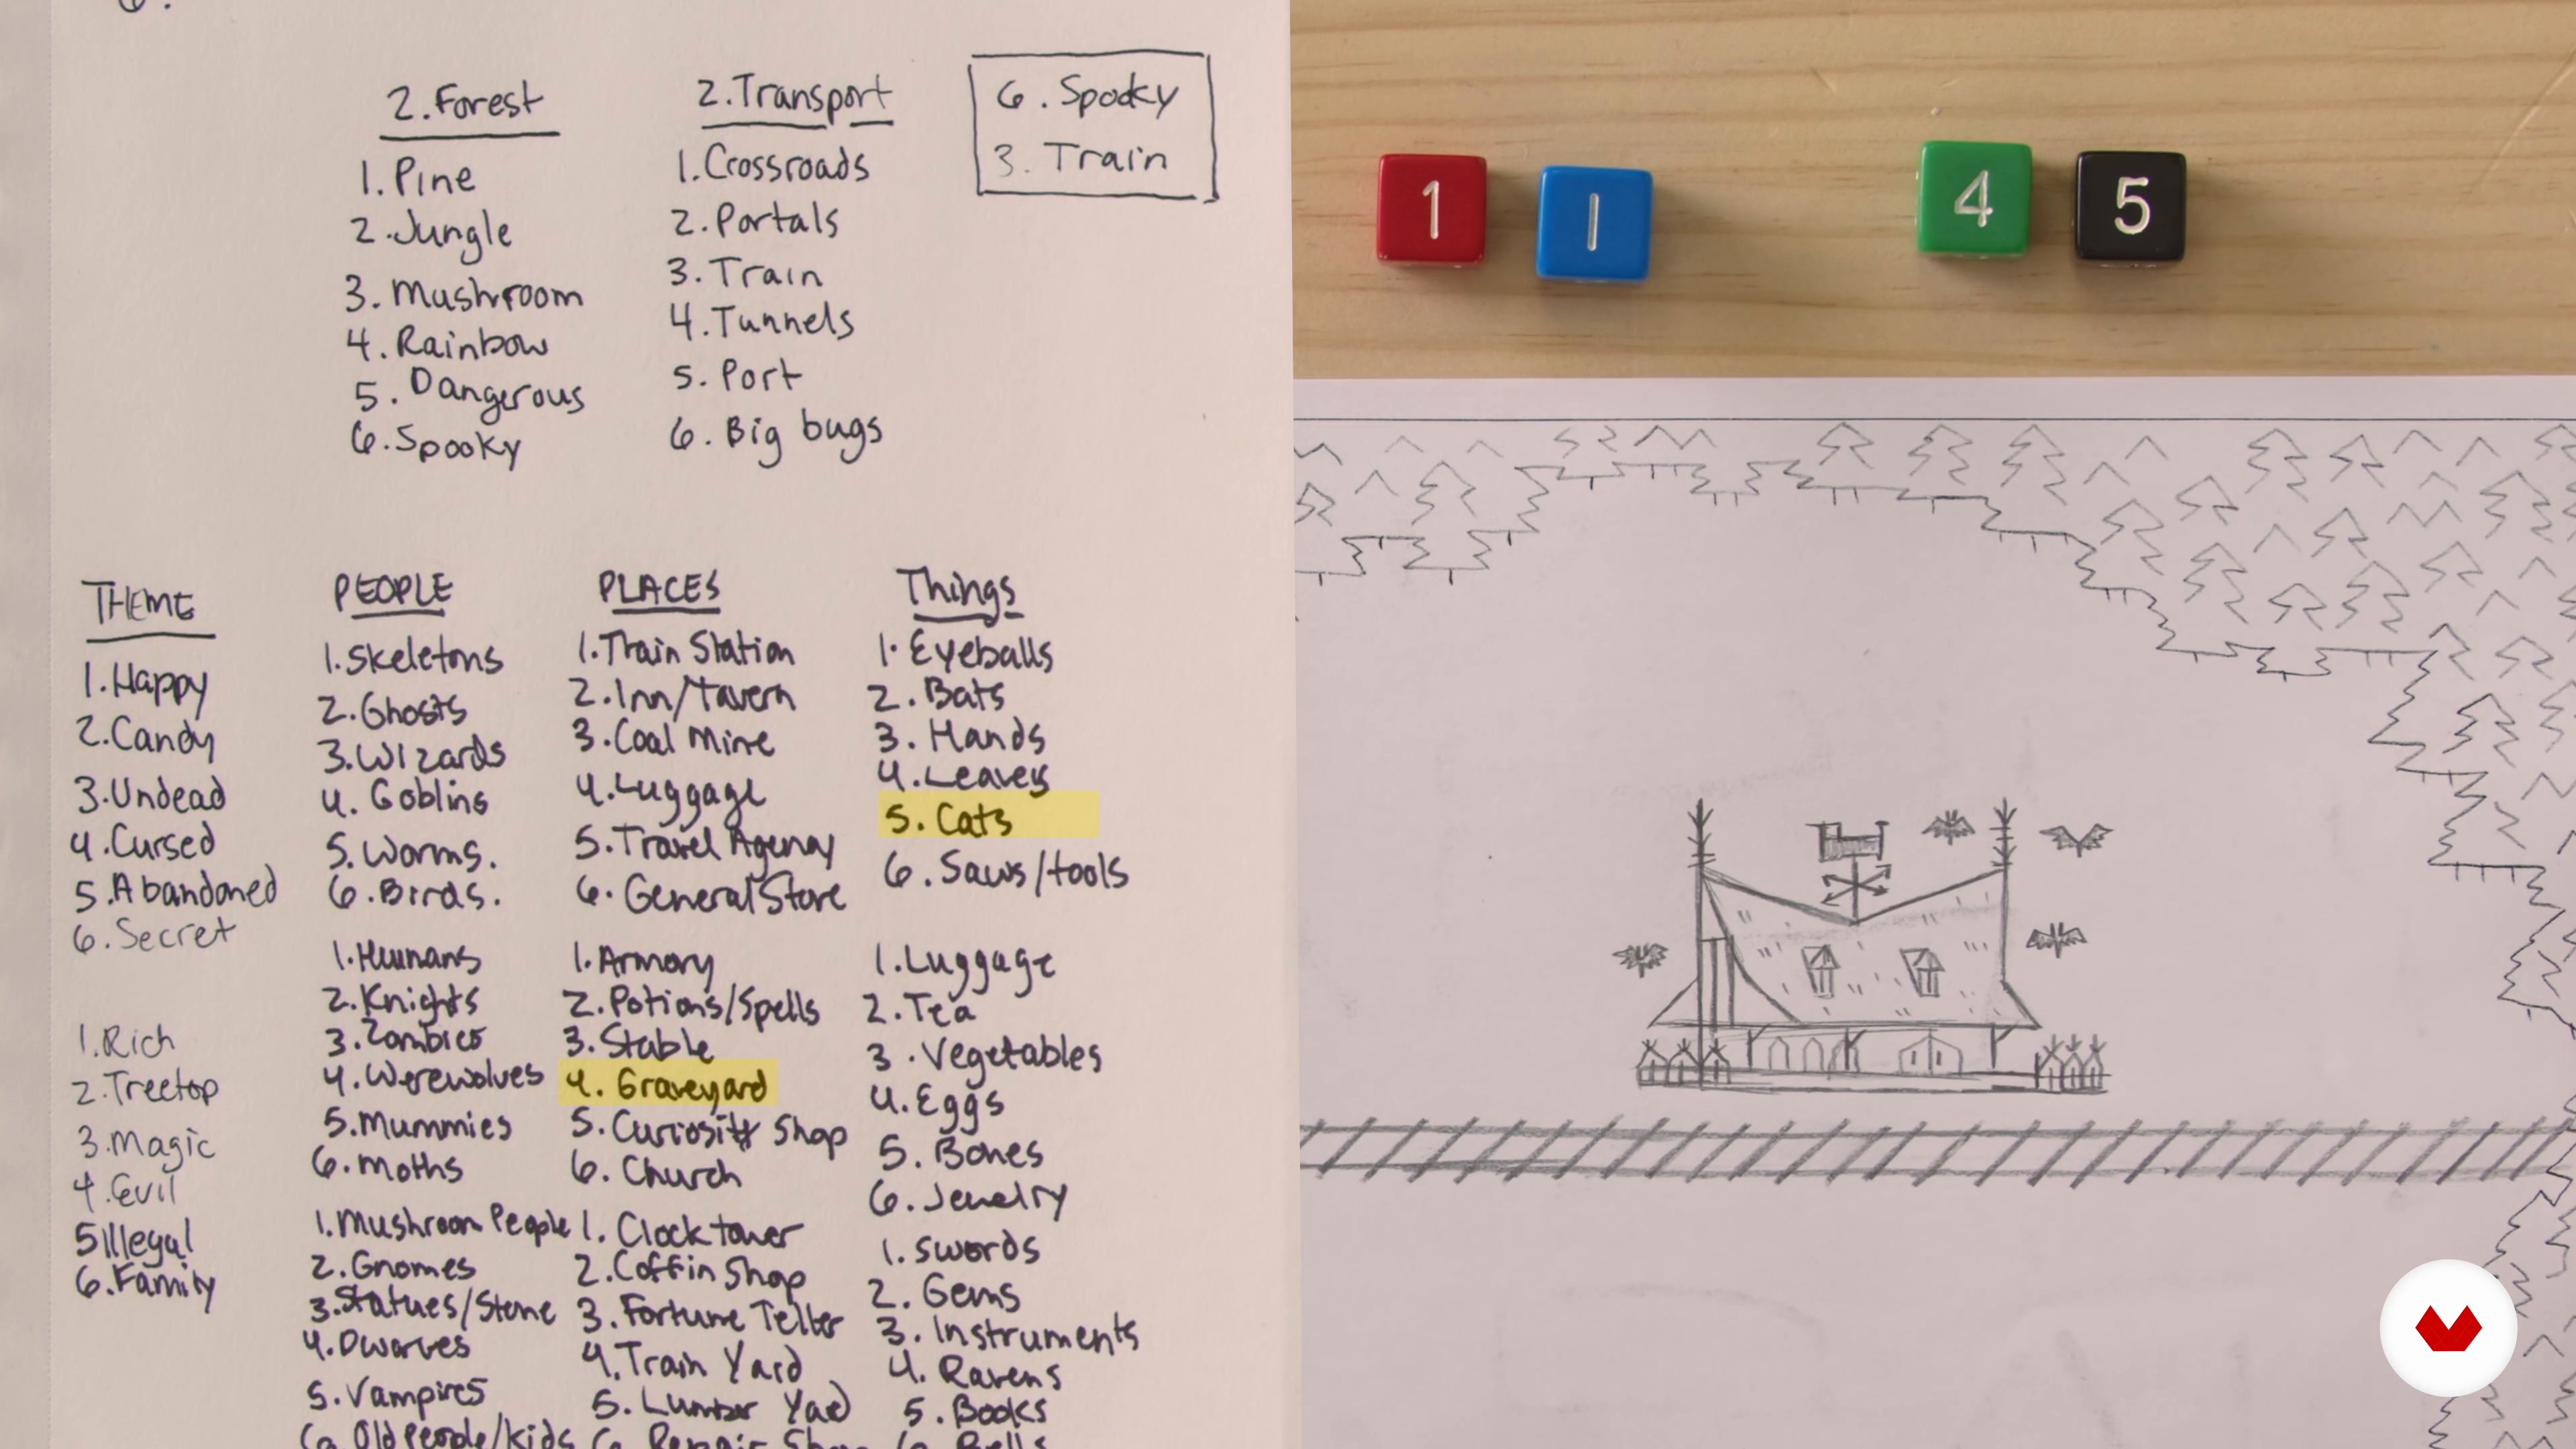 6.
2. Forest
1. Pine
2. Jungle
3. Mushroom
4. Rainbow
5. Dangerous
6. Spooky
2. Transport
1. Crossroads
2. Portals
3. Train
4. Tunnels
5. Port
6. Big bugs
6. Spooky
3. Train
THEME
1. Happy
2. Candy
3. Undead
4. Cursed
5. Abandoned
6. Secret
1. Rich
2. Treetop
3. Magic
4. Evil
5 Illegal
6. Family
PEOPLE
1. Skeletons
2. Ghosts
3. Wizards
4. Goblins
5. Worms.
6. Birds.
1. Humans
2. Knights
3. Zombies
4. Werewolves
5. Mummies
6. Moths
1. Mushroom People
2. Gnomes
3. Statues/Stone
4. Dwarves
5. Vampires
6. Old People/kids
PLACES
1. Train Station
2. Inn/Tavern
3. Coal Mine
4. Luggage
5. Travel Agency
6. General Store
1. Armory
2. Potions/Spells
3. Stable
4. Graveyard
5. Curiosity Shop
6. Church
1. Clocktower
2. Coffin Shop
3. Fortune Teller
4. Train Yard
5. Lumber Yard
6. Repair Shop
Things
1. Eyeballs
2. Bats
3. Hands
4. Leaves
5. Cats
6. Saws/tools
1. Luggage
2. Tea
3. Vegetables
4. Eggs
5. Bones
6. Jewelry
1. Swords
2. Gems
3. Instruments
4. Ravens
5. Books
6. Bells
1 1 4 5